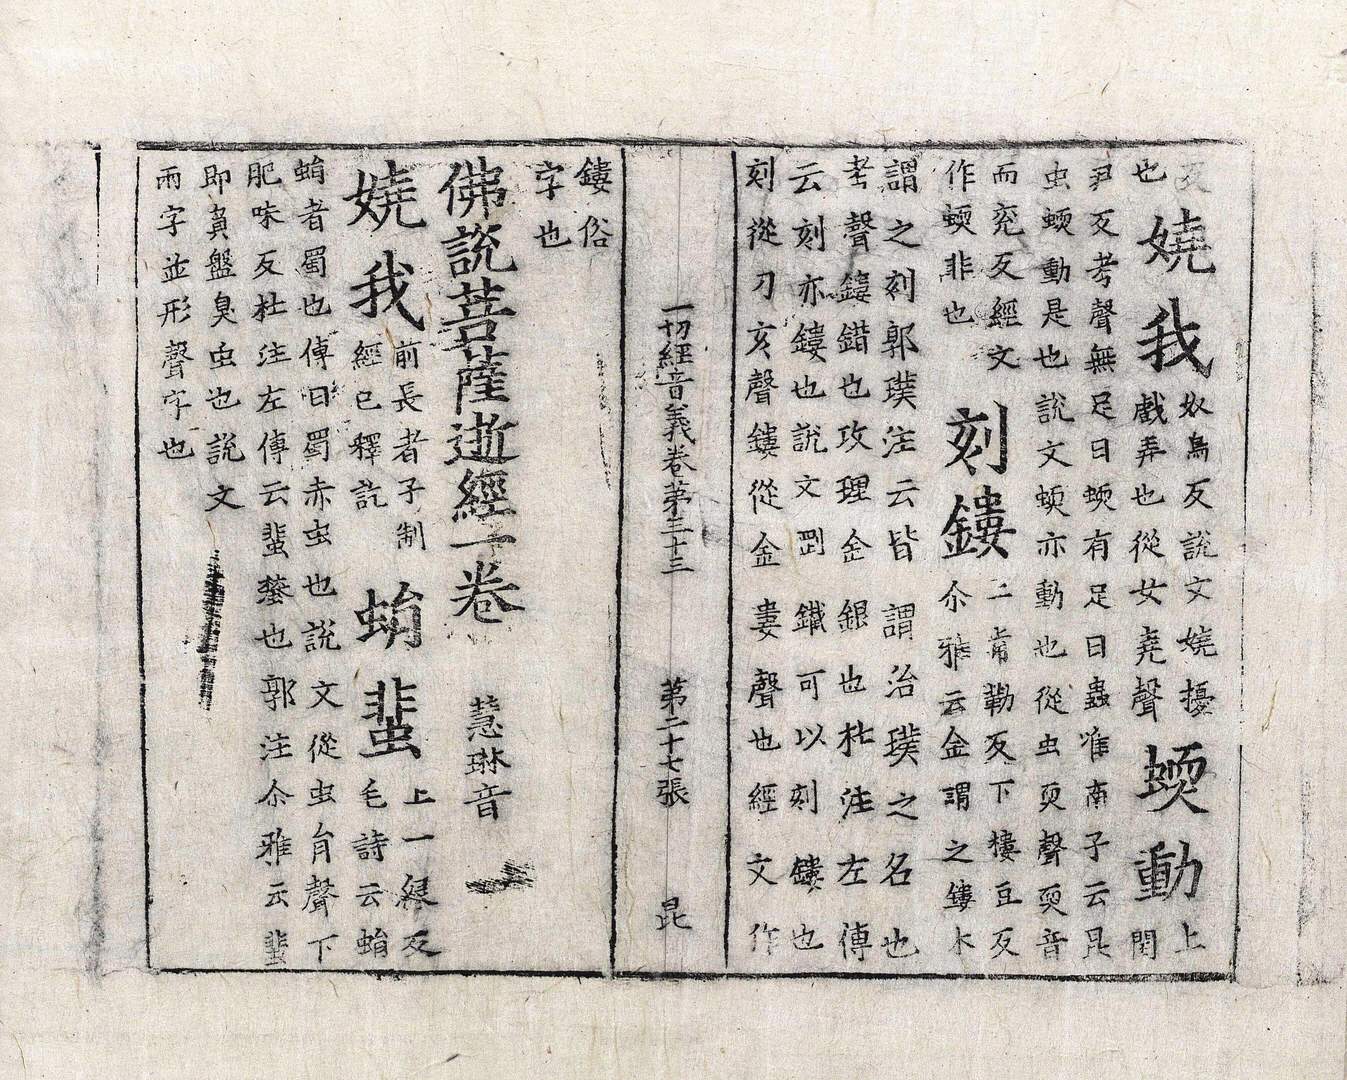 反
也
嬈我
奴鳥反說文嬈擾
戲弄也從女堯聲
蝡動
上
閏
尹反考聲無足曰蝡有足曰蟲淮南子云昆
虫蝡動是也說文蝡亦動也從虫耎聲耎音
而兖反經文
作蝡非也
刻鏤
二肯勒反下樓豆反
尒雅云金謂之鏤木
謂之刻郭璞注云皆謂治璞之名也
考聲鏤錯也攻理金銀也杜注左傳
云刻亦鏤也說文剛鐵可以刻鏤也
刻從刀亥聲鏤從金婁聲也經文作
一切經音義卷第三十三 第二十七張 昆
鏤俗
字也
佛說菩薩逝經一卷 慧琳音
嬈我
前長者子制
經已釋訖
蜎蜚
上一緣反
毛詩云蜎
蜎者蜀也傳曰蜀赤虫也說文從虫肙聲下
肥味反杜注左傳云蜚蠜也郭注尒雅云蜚
即負盤臭虫也說文
兩字並形聲字也